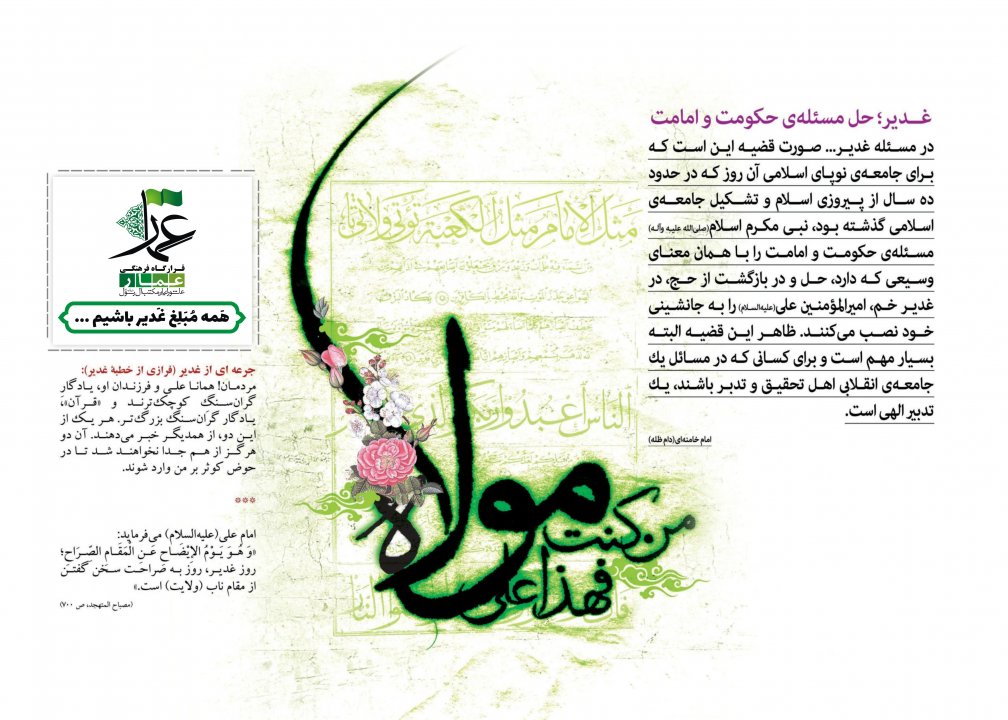 غـــدیر؛ حل مسئله‌ی حکومت و امامت
در مسئله غدیر... صورت قضیه این است که
برای جامعه‌ی نوپای اسلامی آن روز که در حدود
ده سال از پیروزی اسلام و تشکیل جامعه‌ی
اسلامی گذشته بود، نبی مکرم اسلام(صلی‌الله علیه وآله)
مسئله‌ی حکومت و امامت را با همان معنای
وسیعی که دارد، حل و در بازگشت از حج، در
غدیر خم، امیرالمؤمنین علی(علیه‌السلام) را به جانشینی
خود نصب می‌کنند. ظاهر این قضیه البته
بسیار مهم است و برای کسانی که در مسائل یك
جامعه‌ی انقلابی اهل تحقیق و تدبر باشند، یك
تدبیر الهی است.
امام خامنه‌ای(دام ظله)
مثل الامام مثل الکعبة توتی ولا تاتی
من کنت
مولاه
فهذا علی
قرارگاه فرهنگی
عمار
همه مُبَلِغ غَدیر باشیم ...
جرعه ای از غدیر (فرازی از خطبهٔ غدیر):
مردمـان! همانـا علـی و فرزنـدان او، یـادگار
گران‌سـنگِ کوچک‌ترنـد و «قـرآن»،
یـادگار گران‌سـنگ بزرگ‌تـر. هـر یک از
ایـن دو، از همدیگـر خبر می‌دهنـد. آن دو
هرگـز از هـم جـدا نخواهنـد شـد تـا در
حوض کوثر بر من وارد شوند.
***
امام علی(علیه‌السلام) می‌فرماید:
«وَ هُـوَ یَـوْمُ الإِیْضَـاحِ عَـنِ الْمَقَـامِ الصَّرَاحِ؛
روز غدیـر، روز بـه صَراحَـت سـخن گفتـن
از مقام ناب (ولایت) است.»
(مصباح المتهجد، ص ۷۰۰)